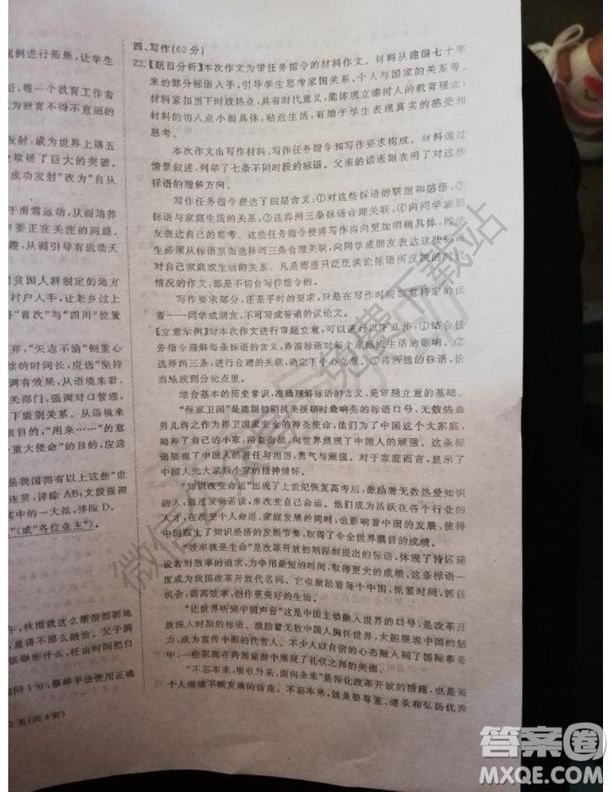 案例进行拓展，让学生
每一个教育工作者
为教育不得不重视的
发射，成为世界上第五
取得了巨大的突破。
成功发射"改为"自从
于滑雪运动，从而培养
中要正在关注的问题。
趣，从而引导有运动天
贫困人群制定的地方
村户人手，让老乡过上
"首次"与"四川"位置
弃，"矢志不渝"侧重心
的时间长，应选"坚持
调有效果，从语境来看，
关部门，强调对口管理，
下级别关系。从语境
面，"用来……"的意
重大使命"的意，应选
是我国拥有以上这些"世
连贯，排除AB；文段强调
其中的一个，排除D。
"（或"各位业主"）。
同1分，修辞手法使用正确
页（共4页）
四、写作（60分）
22.【题目分析】本次作文为带任务指令的材料作文。材料从建国七十年
来的部分标语入手，引导学生思考家国关系，个人与国家的关系等。
材料紧扣当下时政热点，具有时代意义，能体现立德树人的教育理念；
材料的切入点小而具体，贴近生活，有助于学生表现真实的感受和
思考。
本次作文由写作材料、写作任务指令和写作要求构成。材料通过
情景叙述，列举了七条不同时段的标语。父亲的话语则表明了对这些
标语的理解方向。
写作任务指令表达了四层含义：①对这些标语的联想和感悟，②
标语与家庭生活的关系，③选择两三条标语合理关联，④向同学或朋
友表达自己的思考。这些任务指令使得写作指向更加明确具体，即学
生必须从标语里面选择两三条合理关联，向同学或朋友表达
对自己家庭或生活的关系。凡是那些只泛泛谈论标语所反映的时代
情况的作文，都不切合写作指令。
写作要求部分，还是平时的要求，只是在写作时应留意特定的读
者——同学或朋友，不可写成普通的议论文。
【立意示例】对本次作文进行审题立意，可以进行以下几步：①结合任
务指令理解每条标语的含义，弄清标语对个家庭或生活的影响，②
选择两三条，进行合理的关联，确定下中心立意，③将所选的标语，恰
当地放到分论点里。
结合基本的历史常识，准确理解标语的含义，是审题立意的基础。
"保家卫国"是建国初期抗美援朝时最响亮的标语口号，无数热血
男儿将之作为捍卫国家安全的神圣使命，他们为了中国这个大家庭，
抛弃了自己的小家，浴血奋战，向世界展现了中国人的顽强。这条标
语展现了中国人的责任与担当，勇气与顽强。对于家庭而言，显示了
中国人先大家后小家的精神情怀。
"知识改变命运"出现于上世纪恢复高考后，激励着无数爱知识
的人，通过努力，来改变自己命运。他们成为活跃在各个行业的
人才，在改变个人命运、家庭发展的同时，也影响着中国的发展，使得
中国踏上了知识经济的发展节奏，取得了令全世界瞩目的成绩。
"效率就是生命"是改革开放初期深圳提出的标语，体现了特区建
设者对效率的追求，力争用最短的时间，取得更大的成绩，这条标语一
度成为我国改革开放代名词。它也激励着每个中国，抓紧时间，抓住
机会，提高效率，创作更美好的生活。
"让世界听到中国声音"这是中国主动融入世界的口号，是改革开
放深入时期的标语，激励着无数中国人胸怀世界，大胆展现中国的魅
力，成为宣传中国的代言人。不少人以自信的心态融入到了国际事
务中，家庭在跨国旅游中展现了礼仪之邦的美德。
"不忘本来，吸收外来，面向未来"是深化改革开放的措施，也是每
个人继续不断发展的指南。不忘本来，就是要尊重、继承和弘扬优秀
答案圈
MXQE.COM